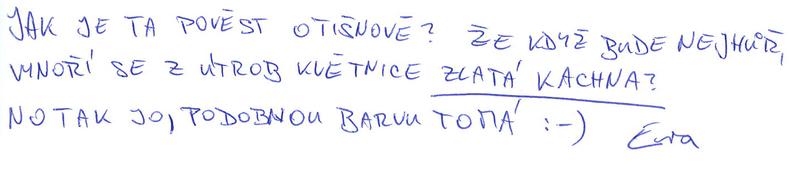 JAK JE TA POVĚST O TIŠNOVĚ? ŽE KDYŽ BUDE NEJHŮŘ,
VYNOŘÍ SE Z ÚTROB KVĚTNICE ZLATÁ KACHNA?
NO TAK JO, PODOBNOU BARVU TO MÁ :-) Eva